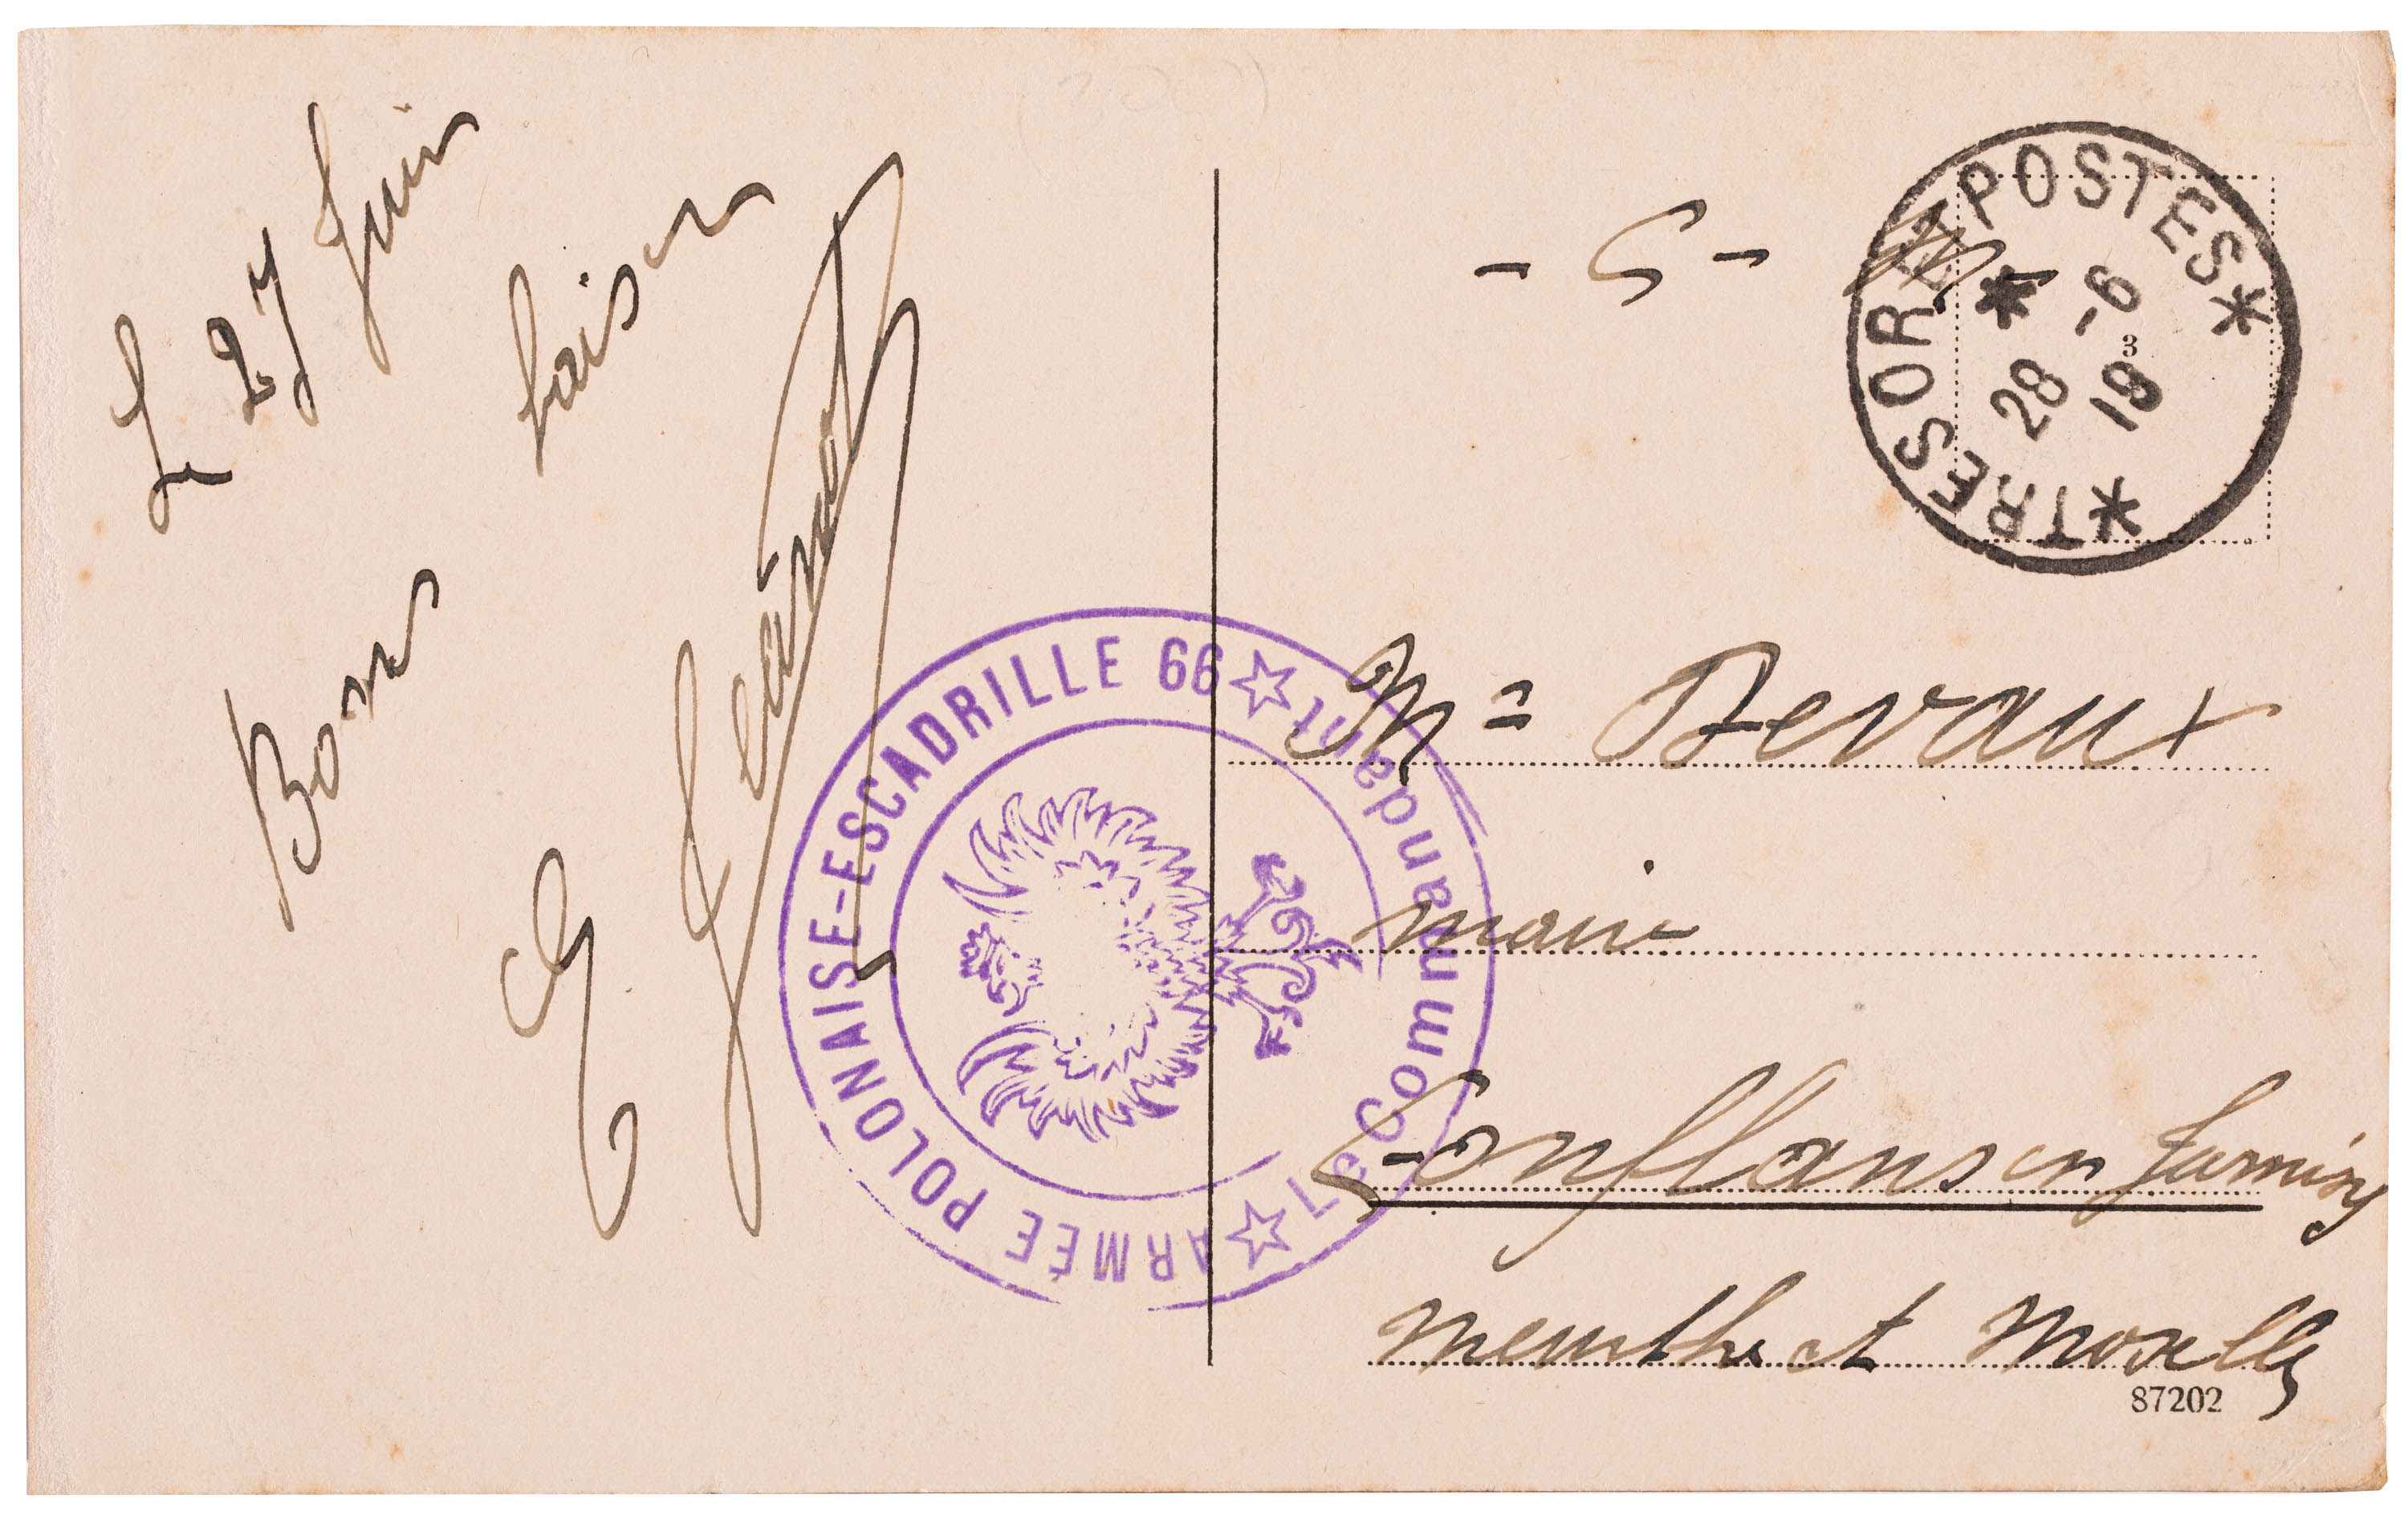 Le 27 Juin
Bons baisers
E
- S - M
TRESOR ET POSTES
28 -6
19
ARMÉE POLONAISE-ESCADRILLE 66
Le Commandant
Mr Devaux
maire
Conflans en Jarnisy
Meurthe et Moselle
87202